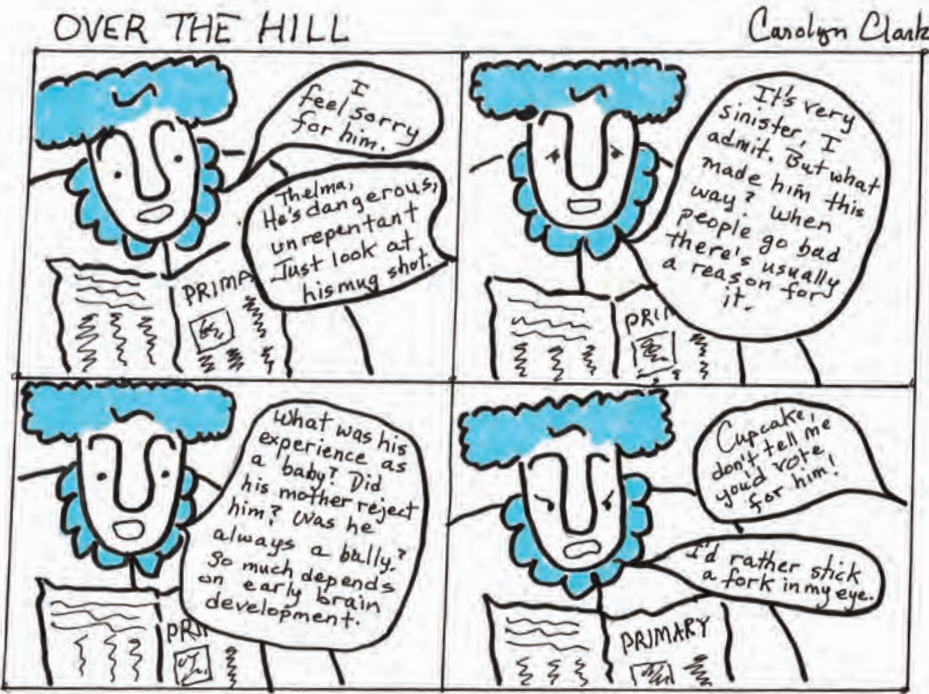 OVER THE HILL
Carolyn Clark
I
feel sorry
for him.
Thelma,
He's dangerous,
unrepentant
Just look at
his mug shot.
PRIMA
It's very
sinister, I
admit. But what
made him this
way? When
people go bad
there's usually
a reason for
it.
PRI
What was his
experience as
a baby? Did
his mother reject
him? Was he
always a bully?
So much depends
on early brain
development.
PRI
Cupcake,
don't tell me
you'd vote
for him!
I'd rather stick
a fork in my eye.
PRIMARY